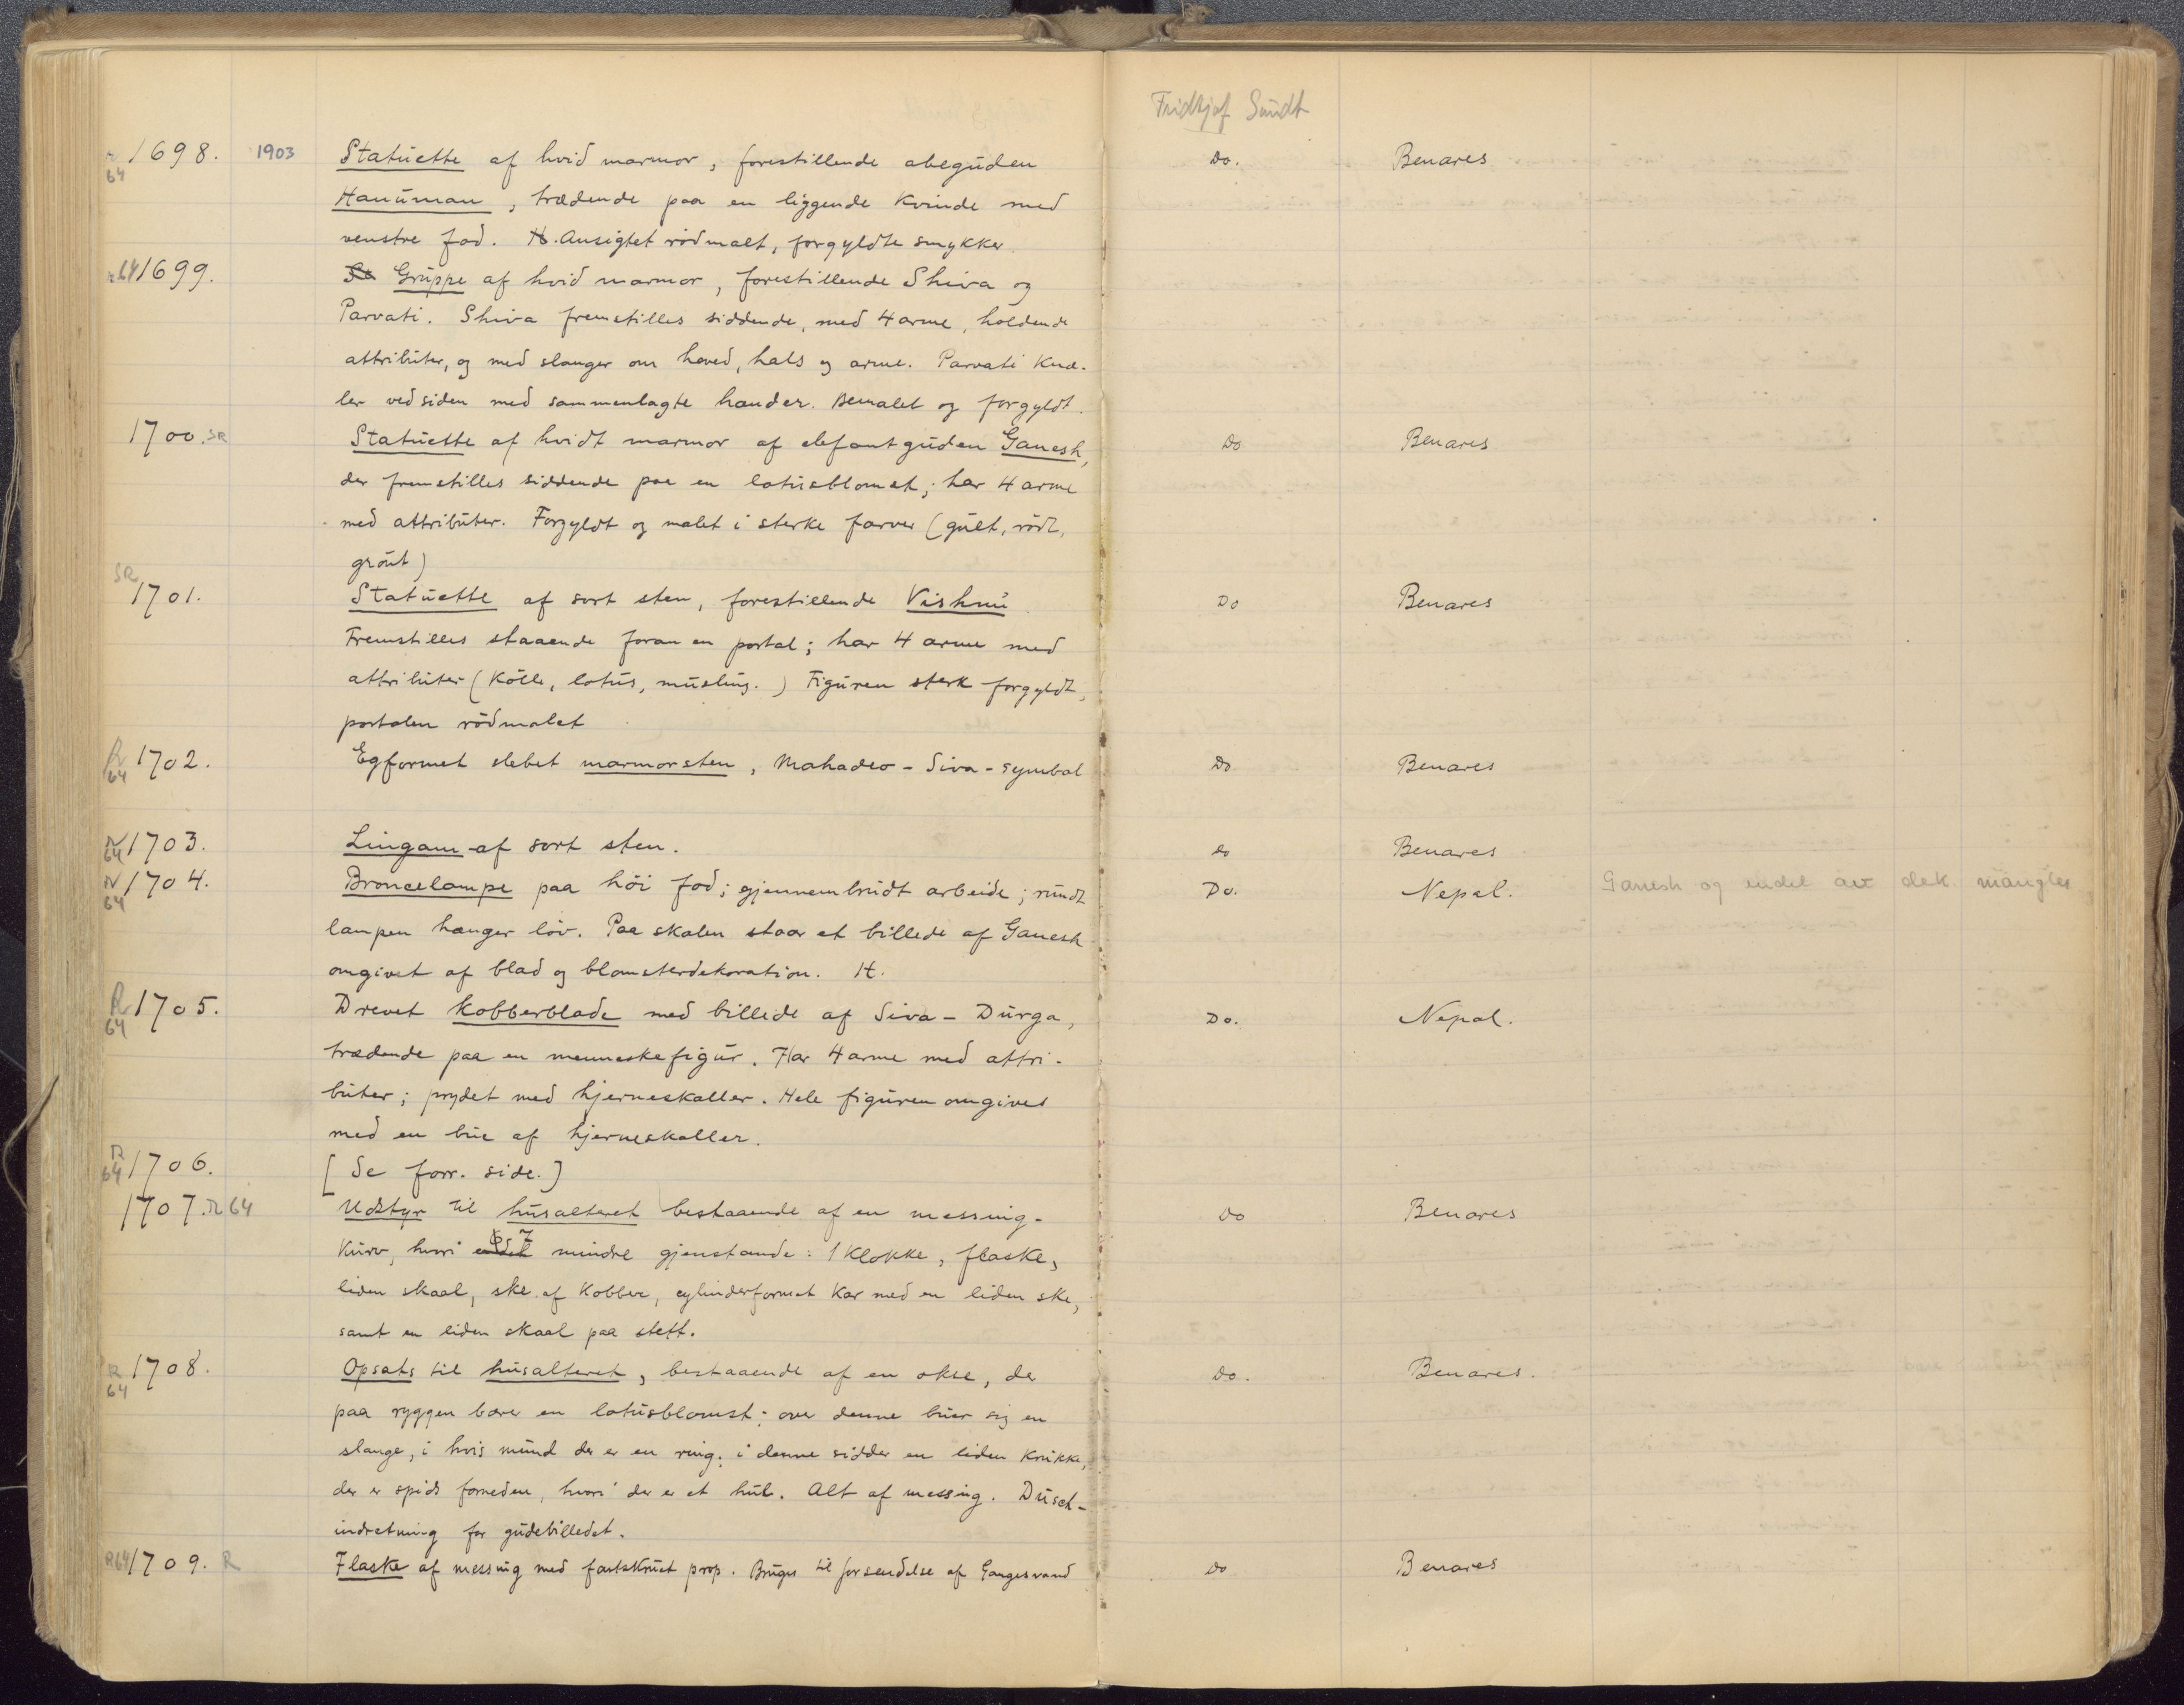 Fridtjof Sundt
R 64 1698. 1903 Statuette af hvid marmor, forestillende abeguden Do. Benares
Hanuman, trædende paa en liggende Kvinde med
venstre fod. H. Ansigtet rödmalt, forgyldte smykker.
R 64 1699. Gruppe af hvid marmor, forestillende Shiva og
Parvati. Shiva fremstilles siddende, med 4 arme, holdende
attributer, og med slanger om hoved, hals og arme. Parvati Knæ-
ler ved siden med sammenlagte hænder. Bemalet og forgyldt.
1700. SR Statuette af hvidt marmor af elefantguden Ganesh, Do Benares
der fremstilles siddende paa en lotusblomst; har 4 arme
med attributer. Forgyldt og malet i sterke farver (gult, rödt,
grönt)
SR 1701. Statuette af sort sten, forestillende Vishnu. Do Benares
Fremstilles staaende foran en portal; har 4 arme med
attributer (Kölle, lotus, musling.) Figuren sterk forgyldt,
portalen rödmalet
R 64 1702. Egformet slebet marmorsten, Mahadeo - Siva - symbol Do Benares
R 64 1703. Lingam af sort sten. do Benares
R 64 1704. Broncelampe paa höi fod; gjennembrudt arbeide; rundt Do. Nepal. Ganesh og endel av dek. mangler
lampen hænger löv. Paa skalen staar et billede af Ganesh
omgivet af blad og blomsterdekoration. H.
R 64 1705. Drevet Kobberblade med billede af Siva - Durga, Do. Nepal.
trædende paa en menneskefigur. Har 4 arme med attri-
buter; prydet med hjerneskaller. Hele figuren omgives
med en bue af hjerneskaller.
R 64 1706. [Se forr. side.]
1707. R 64 Udstyr til husalteret bestaaende af en messing- Do Benares
Kurv, hvori endel 7 mindre gjenstande: 1 Klokke, flaske,
liden skaal, ske af Kobber, cylinderformet Kar med en liden ske,
samt en liden skaal paa stett.
R 64 1708. Opsats til husalteret, bestaaende af en okse, der Do. Benares.
paa ryggen bærer en lotusblomst; over denne buer sig en
slange, i hvis mund der er en ring; i denne sidder en liden Krukke,
der er spids forneden, hvori der er et hul. Alt af messing. Dusch-
indretning for gudebilledet.
R64 1709. R Flaske af messing med fastskruet prop. Bruges til forsendelse af Gangesvand Do Benares